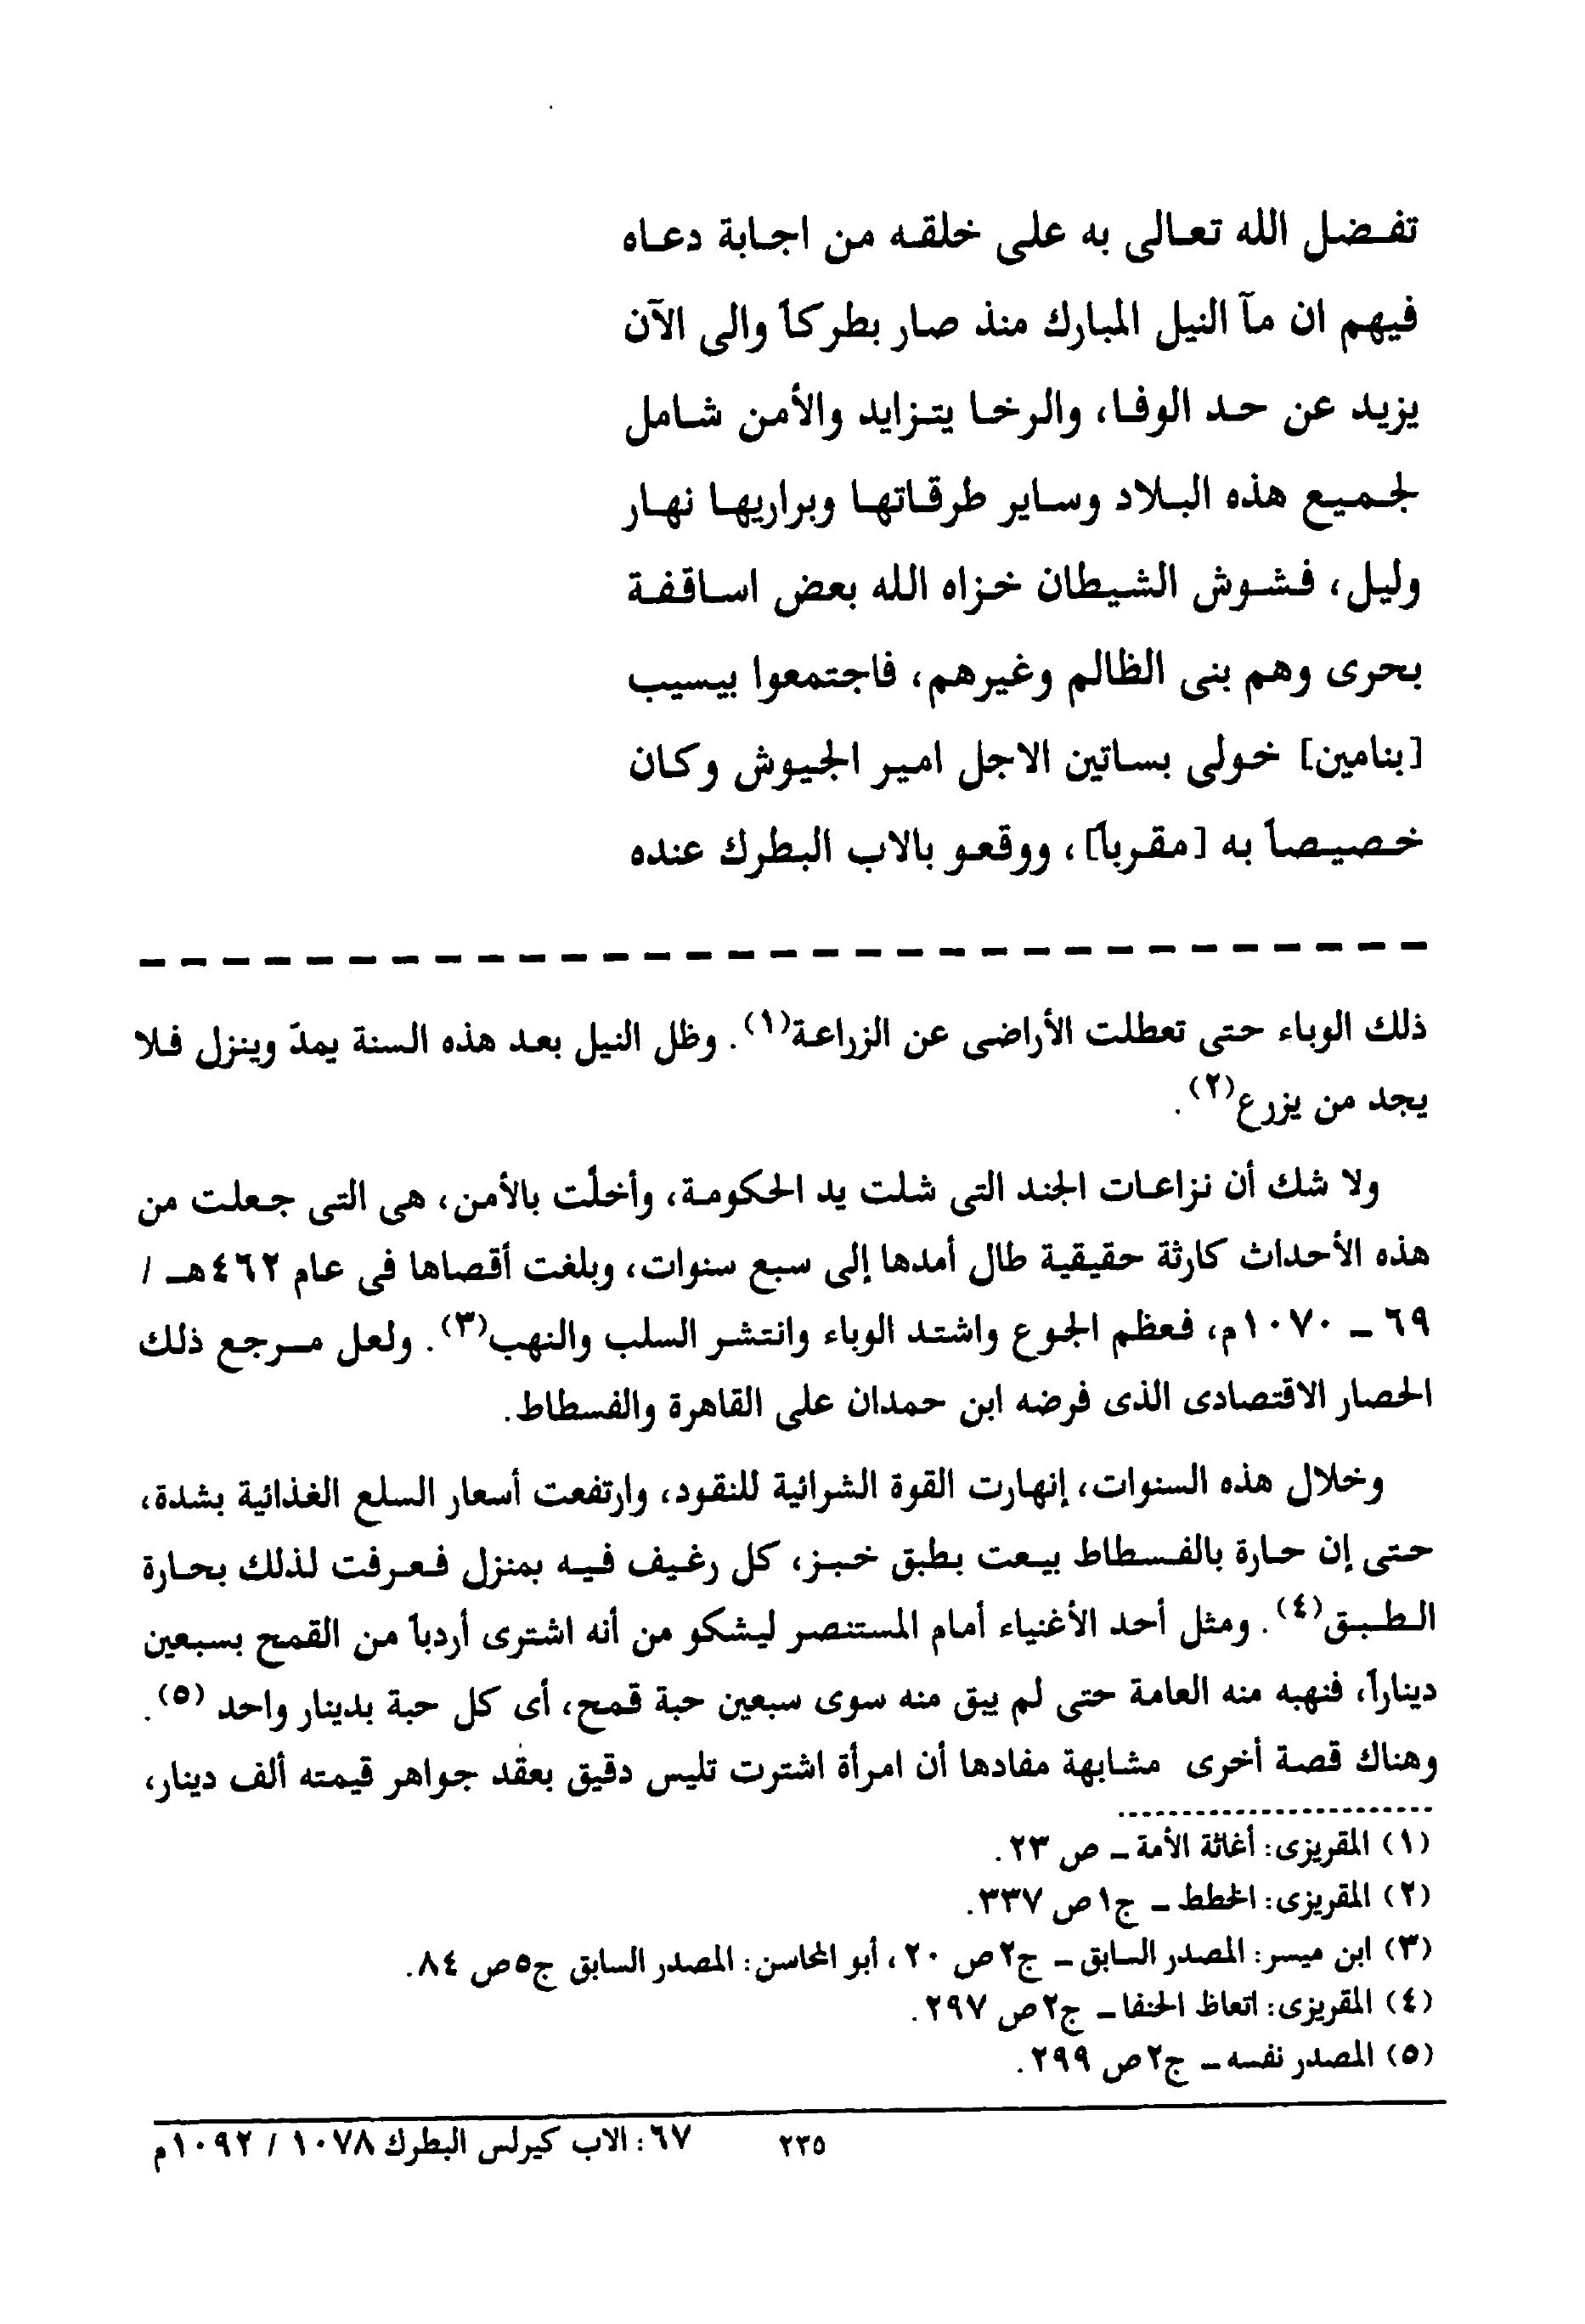 تفضل الله تعالى به على خلقه من اجابة دعاه
فيهم ان مآ النيل المبارك منذ صار بطركاً والى الآن
يزيد عن حد الوفا، والرخا يتزايد والأمن شامل
لجميع هذه البلاد وساير طرقاتها وبراريها نهار
وليل، فشوش الشيطان خزاه الله بعض اساقفة
بحرى وهم بنى الظالم وغيرهم، فاجتمعوا بيسيب
[بنامين] خولى بساتين الاجل امير الجيوش وكان
خصيصاً به [مقرباً]، ووقعو بالاب البطرك عنده
ذلك الوباء حتى تعطلت الأراضى عن الزراعة(١). وظل النيل بعد هذه السنة يمدّ وينزل فلا
يجد من يزرع(٢).
ولا شك أن نزاعات الجند التى شلت يد الحكومة، وأخلّت بالأمن، هى التى جعلت من
هذه الأحداث كارثة حقيقية طال أمدها إلى سبع سنوات، وبلغت أقصاها فى عام ٤٦٢هـ /
٦٩ ـ ١٠٧٠م، فعظم الجوع واشتد الوباء وانتشر السلب والنهب(٣). ولعل مرجع ذلك
الحصار الاقتصادى الذى فرضه ابن حمدان على القاهرة والفسطاط.
وخلال هذه السنوات، إنهارت القوة الشرائية للنقود، وارتفعت أسعار السلع الغذائية بشدة،
حتى إن حارة بالفسطاط بيعت بطبق خبز، كل رغيف فيه بمنزل فعرفت لذلك بحارة
الطبق(٤). ومثل أحد الأغنياء أمام المستنصر ليشكو من أنه اشترى أردباً من القمح بسبعين
ديناراً، فنهبه منه العامة حتى لم يبق منه سوى سبعين حبة قمح، أى كل حبة بدينار واحد (٥).
وهناك قصة أخرى مشابهة مفادها أن امرأة اشترت تليس دقيق بعقد جواهر قيمته ألف دينار،
(١) المقريزى: أغاثة الأمة ـ ص ٢٣.
(٢) المقريزى: الخطط ـ ج١ص ٣٣٧.
(٣) ابن ميسر: المصدر السابق ـ ج٢ص ٢٠، أبو المحاسن: المصدر السابق ج٥ص ٨٤.
(٤) المقريزى: اتعاظ الحنفا ـ ج٢ص ٢٩٧.
(٥) المصدر نفسه ـ ج٢ص ٢٩٩.
٢٣٥ ٦٧: الاب كيرلس البطرك ١٠٧٨ / ١٠٩٢م